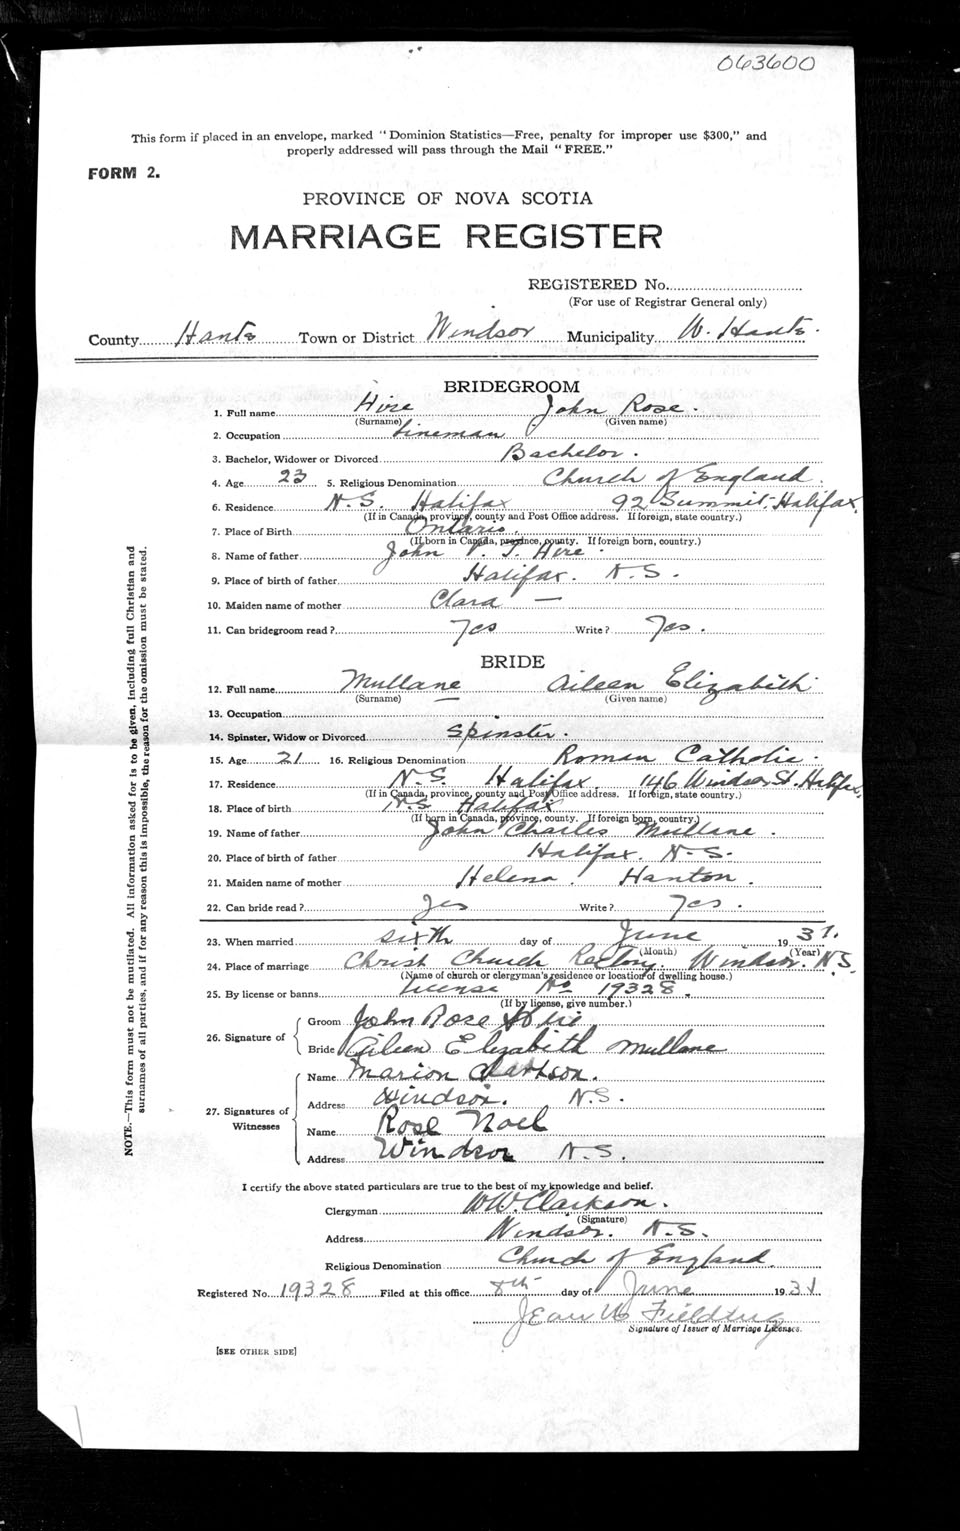 063600
This form if placed in an envelope, marked "Dominion Statistics—Free, penalty for improper use $300," and
properly addressed will pass through the Mail "FREE."
FORM 2.
PROVINCE OF NOVA SCOTIA
MARRIAGE REGISTER
REGISTERED No.
(For use of Registrar General only)
County Hants Town or District Windsor Municipality W. Hants.
BRIDEGROOM
1. Full name Hire John Rose.
(Surname) (Given name)
2. Occupation Lineman
3. Bachelor, Widower or Divorced Bachelor.
4. Age 23 5. Religious Denomination Church of England.
6. Residence N.S. Halifax 92 Summit, Halifax.
(If in Canada, province, county and Post Office address. If foreign, state country.)
7. Place of Birth Ontario
(If born in Canada, province, county. If foreign born, country.)
8. Name of father John Hire
9. Place of birth of father Halifax. N.S.
10. Maiden name of mother Clara —
11. Can bridegroom read? Yes Write? Yes.
BRIDE
12. Full name Mullane Aileen Elizabeth
(Surname) (Given name)
13. Occupation
14. Spinster, Widow or Divorced Spinster.
15. Age 21 16. Religious Denomination Roman Catholic.
17. Residence N.S. Halifax. 146 Windsor St. Halifax.
(If in Canada, province, county and Post Office address. If foreign, state country.)
18. Place of birth N.S. Halifax
(If born in Canada, province, county. If foreign born, country.)
19. Name of father John Charles Mullane.
20. Place of birth of father Halifax. N.S.
21. Maiden name of mother Helena. Hanton.
22. Can bride read? Yes Write? Yes.
23. When married sixth day of June 1931.
(Month) (Year)
24. Place of marriage Christ Church Rectory. Windsor. N.S.
(Name of church or clergyman's residence or location of dwelling house.)
25. By license or banns License No 19328.
(If by license, give number.)
26. Signature of
Groom John Rose
Bride Aileen Elizabeth Mullane
27. Signatures of Witnesses
Name Marion Clarkson.
Address Windsor. N.S.
Name Rose Noel
Address Windsor N.S.
I certify the above stated particulars are true to the best of my knowledge and belief.
Clergyman W.W. Clarkson.
(Signature)
Address Windsor. N.S.
Religious Denomination Church of England.
Registered No. 19328 Filed at this office 8th day of June 1931.
Jean Fielding
Signature of Issuer of Marriage Licenses.
[SEE OTHER SIDE]
NOTE.—This form must not be mutilated. All information asked for is to be given, including full Christian and
surnames of all parties, and if for any reason this is impossible, the reason for the omission must be stated.